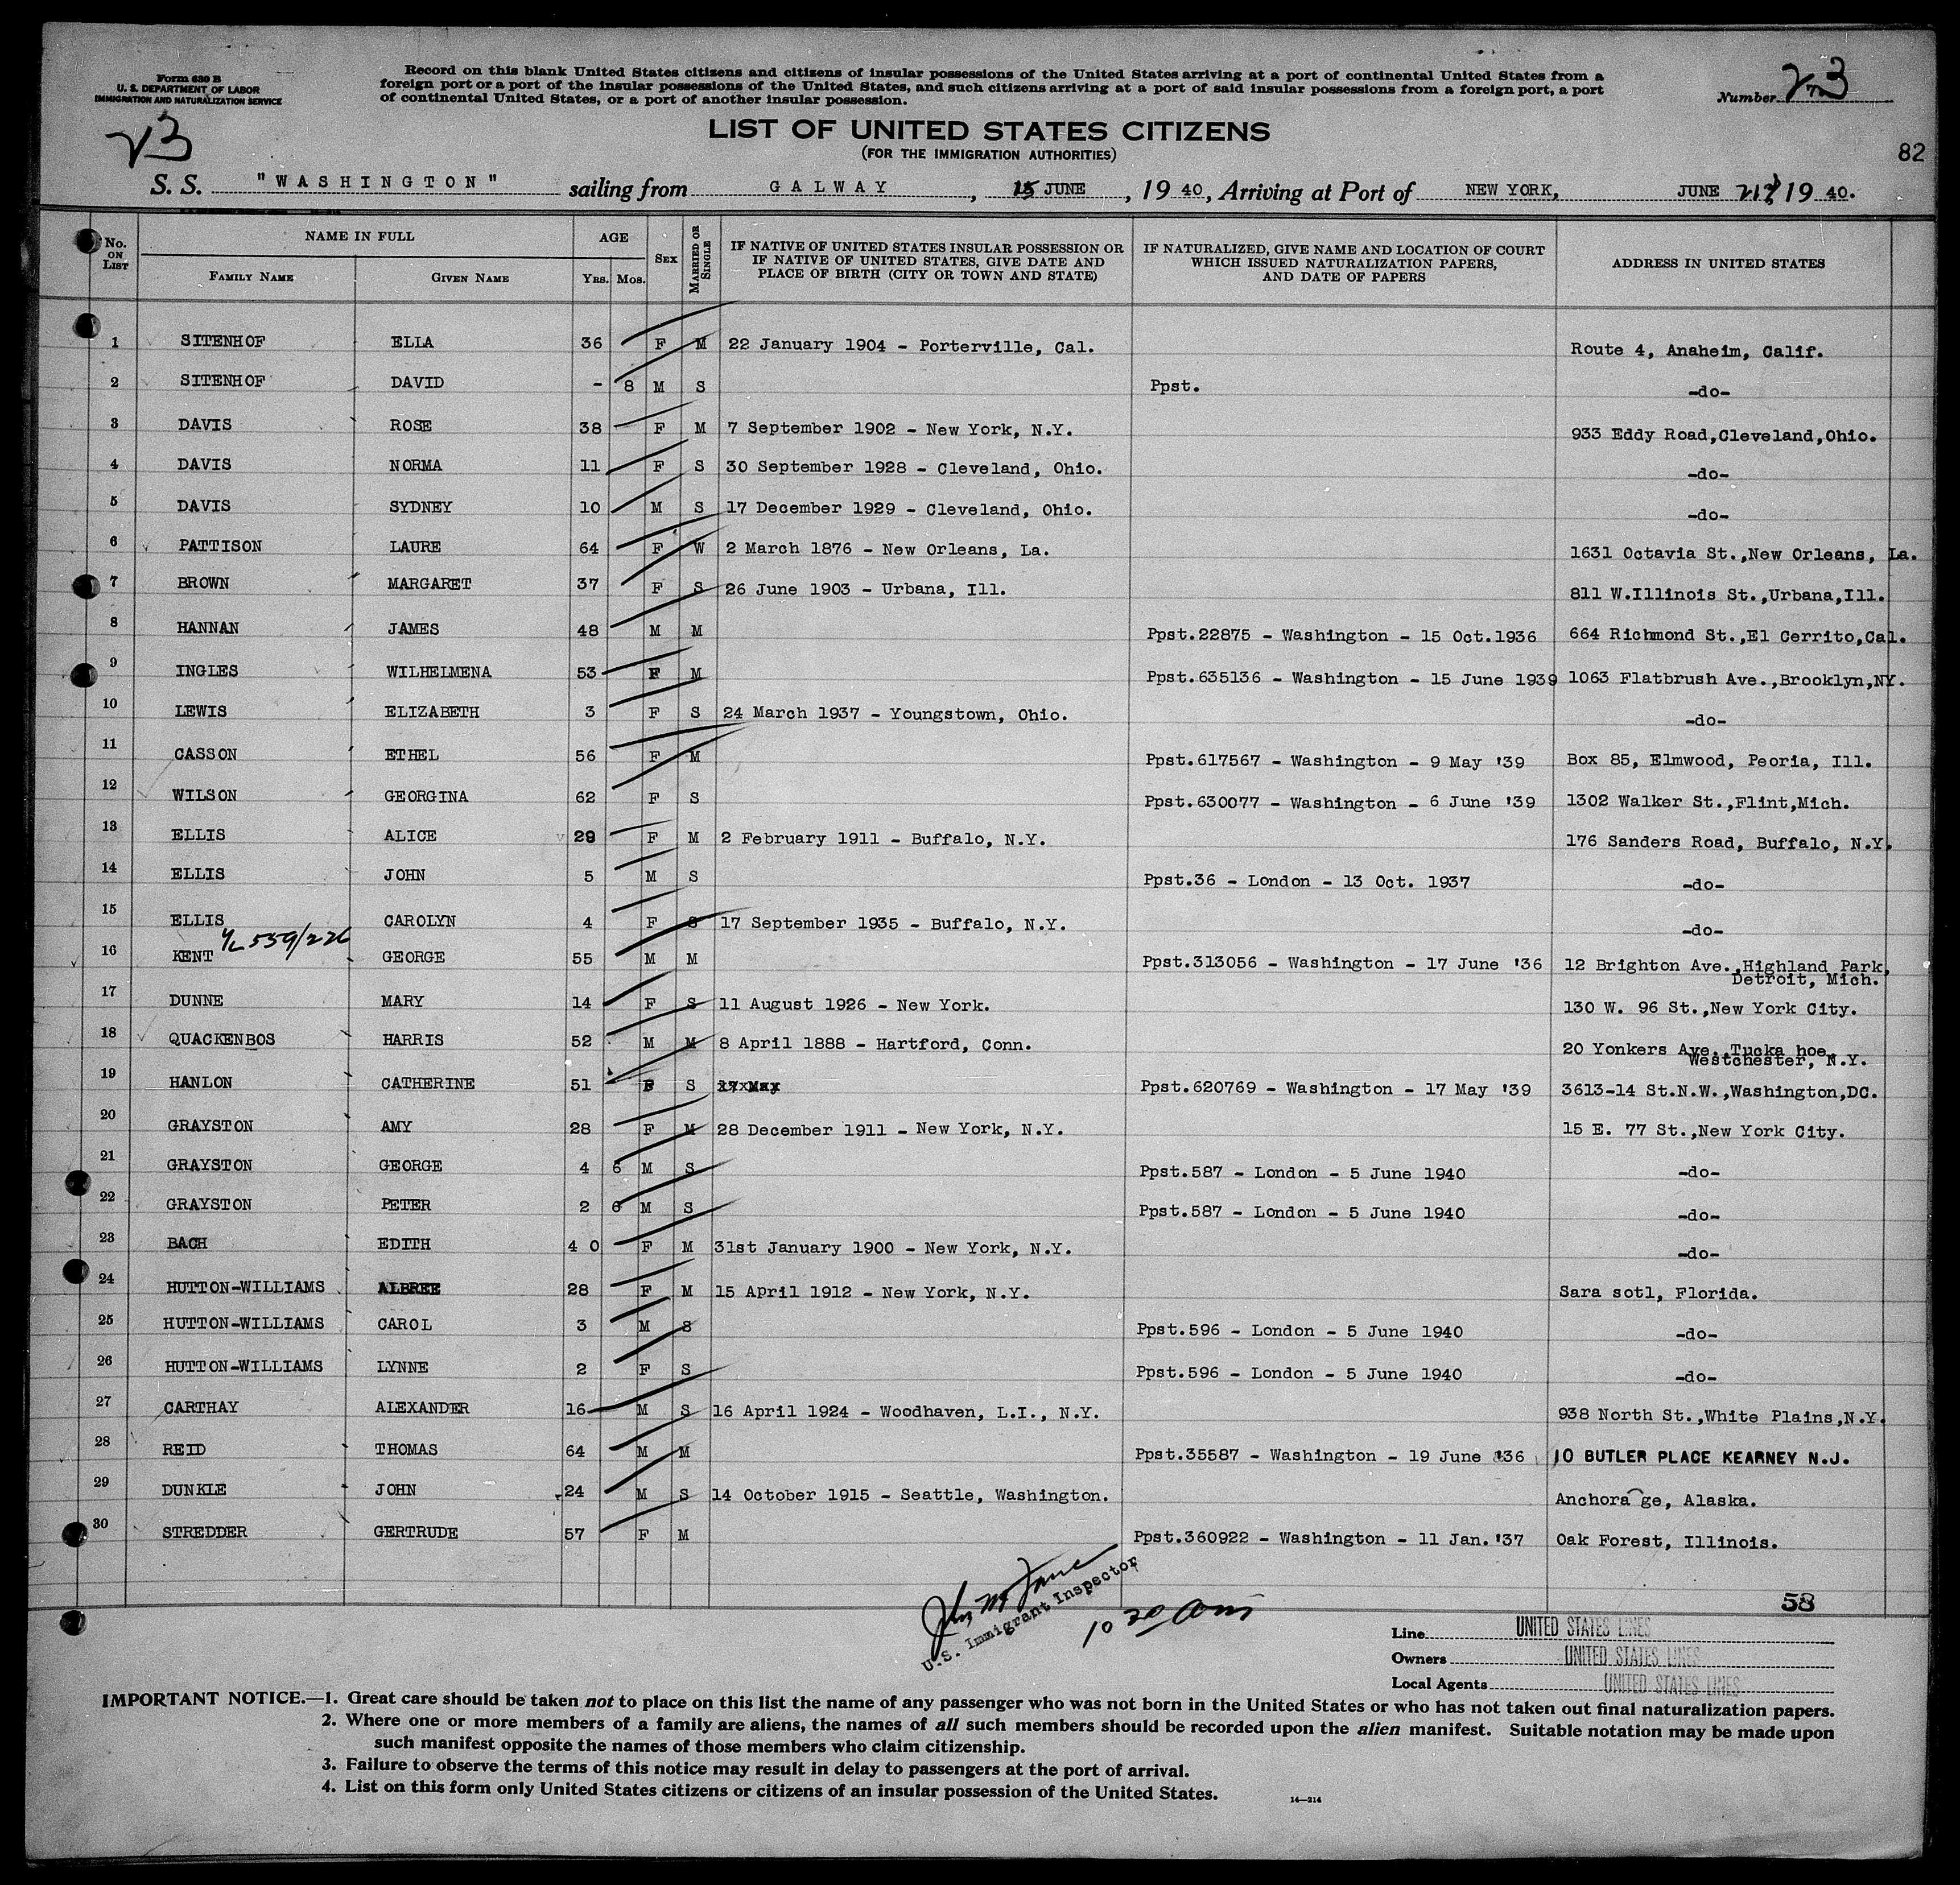 Form 630 B
U. S. DEPARTMENT OF LABOR
IMMIGRATION AND NATURALIZATION SERVICE
Record on this blank United States citizens and citizens of insular possessions of the United States arriving at a port of continental United States from a
foreign port or a port of the insular possessions of the United States, and such citizens arriving at a port of said insular possessions from a foreign port, a port
of continental United States, or a port of another insular possession.
Number 23
23
LIST OF UNITED STATES CITIZENS
(FOR THE IMMIGRATION AUTHORITIES)
82
S. S. "WASHINGTON" sailing from GALWAY, 15 JUNE, 19 40, Arriving at Port of NEW YORK, JUNE 19 40.
No. ON LIST
NAME IN FULL
FAMILY NAME GIVEN NAME
AGE
YRS. MOS.
SEX
MARRIED OR SINGLE
IF NATIVE OF UNITED STATES INSULAR POSSESSION OR
IF NATIVE OF UNITED STATES, GIVE DATE AND
PLACE OF BIRTH (CITY OR TOWN AND STATE)
IF NATURALIZED, GIVE NAME AND LOCATION OF COURT
WHICH ISSUED NATURALIZATION PAPERS,
AND DATE OF PAPERS
ADDRESS IN UNITED STATES
1 SITENHOF ELLA 36 F M 22 January 1904 - Porterville, Cal. Route 4, Anaheim, Calif.
2 SITENHOF DAVID - 8 M S Ppst. -do-
3 DAVIS ROSE 38 F M 7 September 1902 - New York, N.Y. 933 Eddy Road,Cleveland,Ohio.
4 DAVIS NORMA 11 F S 30 September 1928 - Cleveland, Ohio. -do-
5 DAVIS SYDNEY 10 M S 17 December 1929 - Cleveland, Ohio. -do-
6 PATTISON LAURE 64 F W 2 March 1876 - New Orleans, La. 1631 Octavia St.,New Orleans, La.
7 BROWN MARGARET 37 F S 26 June 1903 - Urbana, Ill. 811 W.Illinois St.,Urbana,Ill.
8 HANNAN JAMES 48 M M Ppst.22875 - Washington - 15 Oct.1936 664 Richmond St.,El Cerrito,Cal.
9 INGLES WILHELMENA 53 F M Ppst.635136 - Washington - 15 June 1939 1063 Flatbrush Ave.,Brooklyn,NY.
10 LEWIS ELIZABETH 3 F S 24 March 1937 - Youngstown, Ohio. -do-
11 CASSON ETHEL 56 F M Ppst.617567 - Washington - 9 May '39 Box 85, Elmwood, Peoria, Ill.
12 WILSON GEORGINA 62 F S Ppst.630077 - Washington - 6 June '39 1302 Walker St.,Flint,Mich.
13 ELLIS ALICE 29 F M 2 February 1911 - Buffalo, N.Y. 176 Sanders Road, Buffalo, N.Y.
14 ELLIS JOHN 5 M S Ppst.36 - London - 13 Oct. 1937 -do-
15 ELLIS CAROLYN 4 F S 17 September 1935 - Buffalo, N.Y. -do-
559/226
16 KENT GEORGE 55 M M Ppst.313056 - Washington - 17 June '36 12 Brighton Ave.,Highland Park,
Detroit, Mich.
17 DUNNE MARY 14 F S 11 August 1926 - New York. 130 W. 96 St.,New York City.
18 QUACKENBOS HARRIS 52 M M 8 April 1888 - Hartford, Conn. 20 Yonkers Ave., Tucka hoe,
Westchester, N.Y.
19 HANLON CATHERINE 51 F S 17 May Ppst.620769 - Washington - 17 May '39 3613-14 St.N.W.,Washington,DC.
20 GRAYSTON AMY 28 F M 28 December 1911 - New York, N.Y. 15 E. 77 St.,New York City.
21 GRAYSTON GEORGE 4 6 M S Ppst.587 - London - 5 June 1940 -do-
22 GRAYSTON PETER 2 6 M S Ppst.587 - London - 5 June 1940 -do-
23 BACH EDITH 4 0 F M 31st January 1900 - New York, N.Y. -do-
24 HUTTON-WILLIAMS ALBREE 28 F M 15 April 1912 - New York, N.Y. Sara sotl, Florida.
25 HUTTON-WILLIAMS CAROL 3 M S Ppst.596 - London - 5 June 1940 -do-
26 HUTTON-WILLIAMS LYNNE 2 F S Ppst.596 - London - 5 June 1940 -do-
27 CARTHAY ALEXANDER 16 M S 16 April 1924 - Woodhaven, L.I., N.Y. 938 North St.,White Plains,N.Y.
28 REID THOMAS 64 M M Ppst.35587 - Washington - 19 June '36 10 BUTLER PLACE KEARNEY N.J.
29 DUNKLE JOHN 24 M S 14 October 1915 - Seattle, Washington. Anchora ge, Alaska.
30 STREDDER GERTRUDE 57 F M Ppst.360922 - Washington - 11 Jan. '37 Oak Forest, Illinois.
58
U.S. Immigrant Inspector
10 30 am
Line UNITED STATES LINES
Owners UNITED STATES LINES
Local Agents UNITED STATES LINES
IMPORTANT NOTICE.—1. Great care should be taken not to place on this list the name of any passenger who was not born in the United States or who has not taken out final naturalization papers.
2. Where one or more members of a family are aliens, the names of all such members should be recorded upon the alien manifest. Suitable notation may be made upon
such manifest opposite the names of those members who claim citizenship.
3. Failure to observe the terms of this notice may result in delay to passengers at the port of arrival.
4. List on this form only United States citizens or citizens of an insular possession of the United States.
14—214